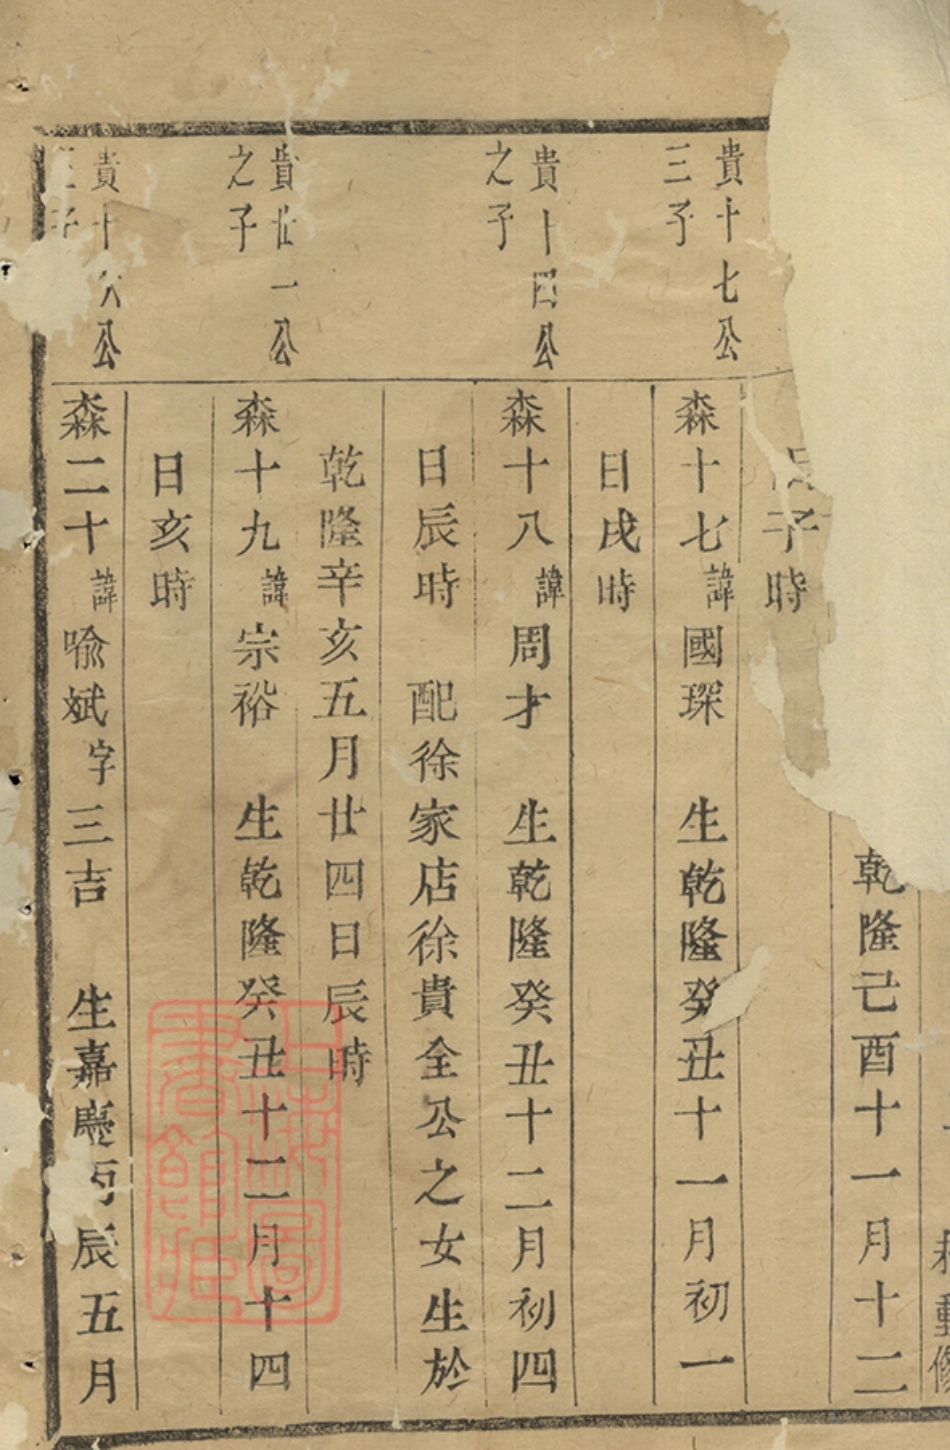 乾隆己酉十一月十二
子時
貴十七公
三子
森十七諱國琛　生乾隆癸丑十一月初一
日戌時
貴十四公
之子
森十八諱周才　生乾隆癸丑十二月初四
日辰時　配徐家店徐貴全公之女生於
乾隆辛亥五月廿四日辰時
貴廿一公
之子
森十九諱宗裕　生乾隆癸丑十二月十四
日亥時
貴十公
子
森二十諱喻斌字三吉　生嘉慶丙辰五月
上海圖
書館藏